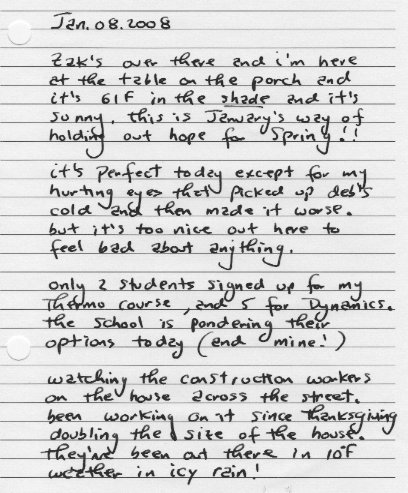 Jan. 08. 2008
Zak's over there and i'm here
at the table on the porch and
it's 61F in the shade and it's
sunny. this is January's way of
holding out hope for Spring!!
it's perfect today except for my
hurting eyes that picked up deb's
cold and then made it worse.
but it's too nice out here to
feel bad about anything.
only 2 students signed up for my
Thermo course, and 5 for Dynamics.
the school is pondering their
options today (and mine!)
watching the construction workers
on the house across the street.
been working on it since Thanksgiving
doubling the size of the house.
they've been out there in 10°F
weather in icy rain!